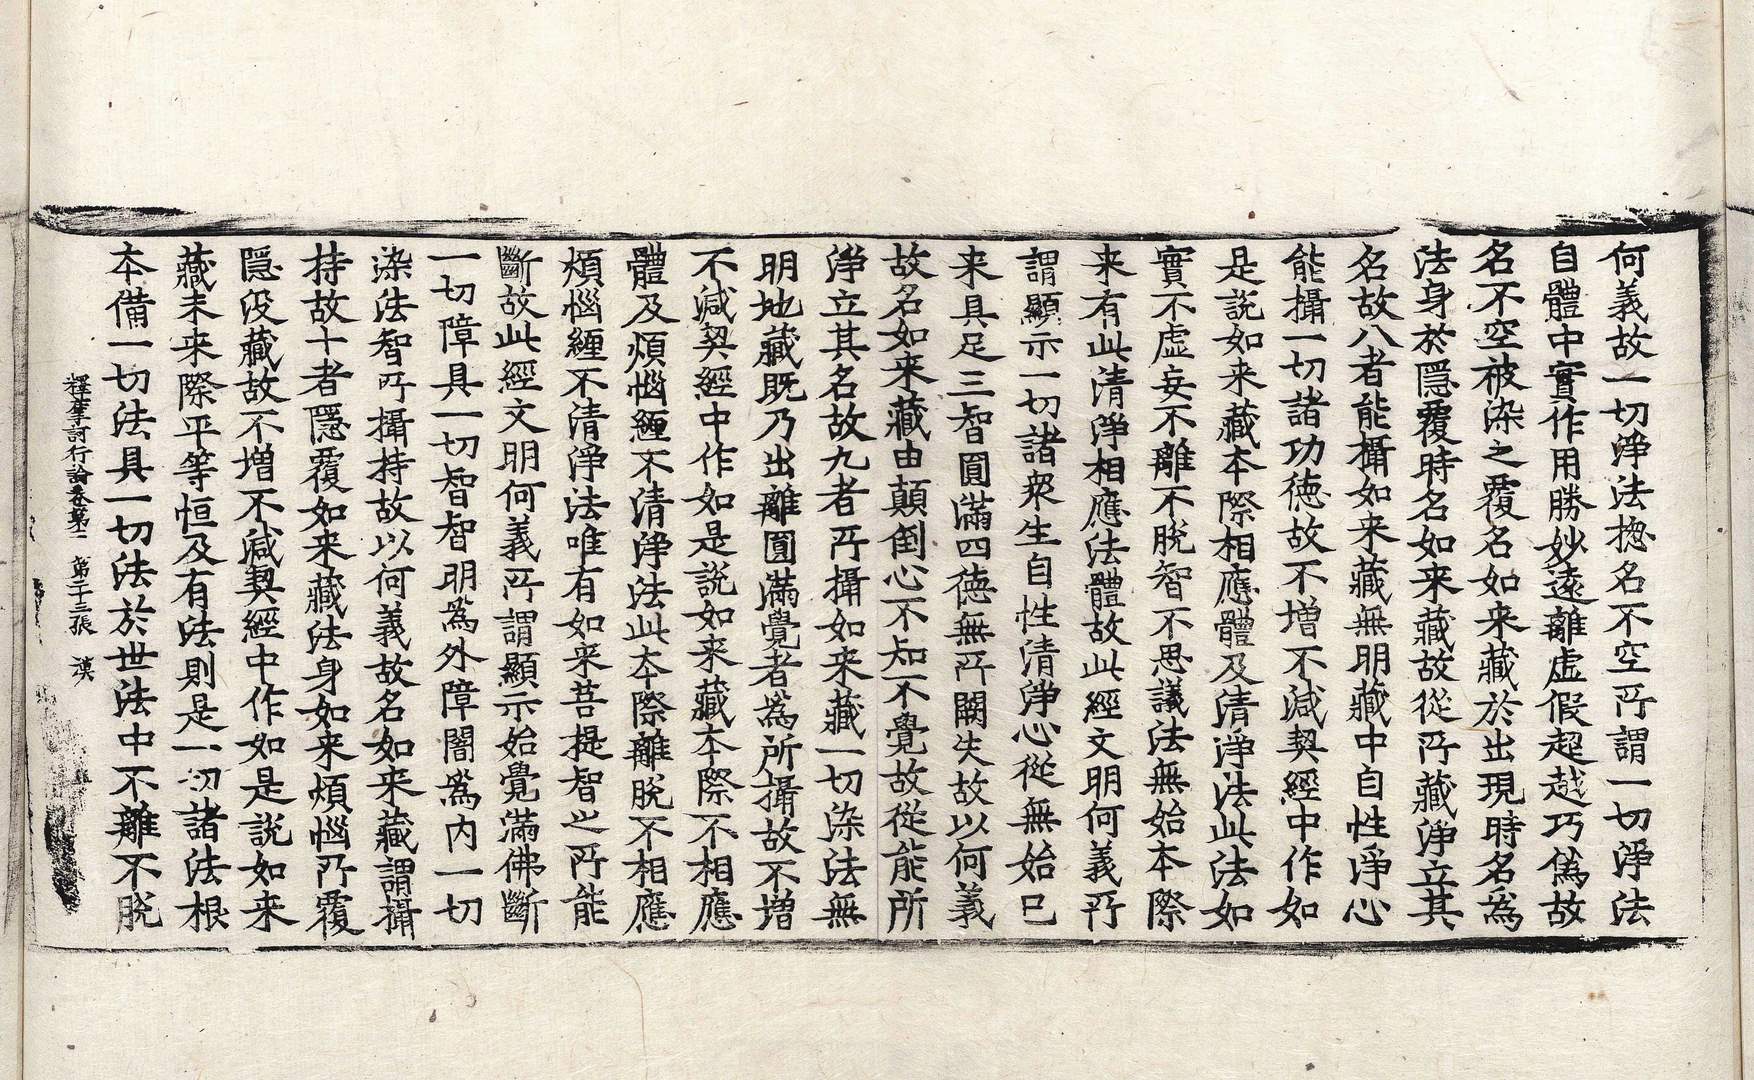 何義故一切淨法揔名不空𠩄謂一切淨法
自體中實作用勝妙遠離虛假超越巧僞故
名不空被染之覆名如来藏於出現時名爲
法身於隱覆時名如来藏故從𠩄藏淨立其
名故八者能攝如来藏無明藏中自性淨心
能攝一切諸功徳故不增不減契經中作如
是說如来藏本際相應體及清淨法此法如
實不虛妄不離不脫智不思議法無始本際
来有此清淨相應法體故此經文明何義𠩄
謂顯示一切諸衆生自性清淨心從無始已
来具足三智圓滿四徳無𠩄闕失故以何義
故名如来藏由顛倒心不知不覺故從能所
淨立其名故九者𠩄攝如来藏一切染法無
明地藏既乃出離圓滿覺者爲所攝故不增
不減契經中作如是說如来藏本際不相應
體及煩惱纏不清淨法此本際離脫不相應
煩惱纏不清淨法唯有如来菩提智之𠩄能
斷故此經文明何義𠩄謂顯示始覺滿佛斷
一切障具一切智智明爲外障闇爲内一切
染法智𠩄攝持故以何義故名如来藏謂攝
持故十者隱覆如来藏法身如来煩惱𠩄覆
隱没藏故不增不減契經中作如是說如来
藏未来際平等恒及有法則是一切諸法根
本備一切法具一切法於世法中不離不脫
釋摩訶衍論卷第二 第二十三張 漢